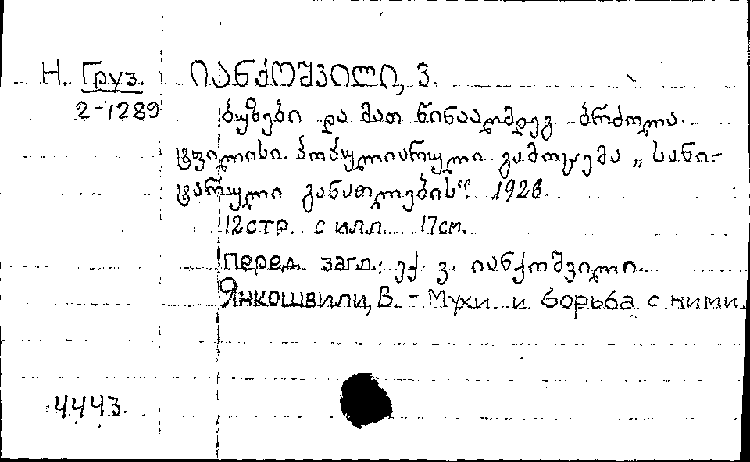 Н. Груз. იანქოშვილი, ვ.
2-1289 ბუზები და მათ წინააღმდეგ ბრძოლა.
ტფილისი. პოპულიარული გამოცემა „სანი-
ტარული განათლების“. 1926.
12 стр. с илл. 17 см.
Перед. загл.: ექ. ვ. იანქოშვილი.
Янкошвили, В. - Мухи и борьба с ними.
4443.